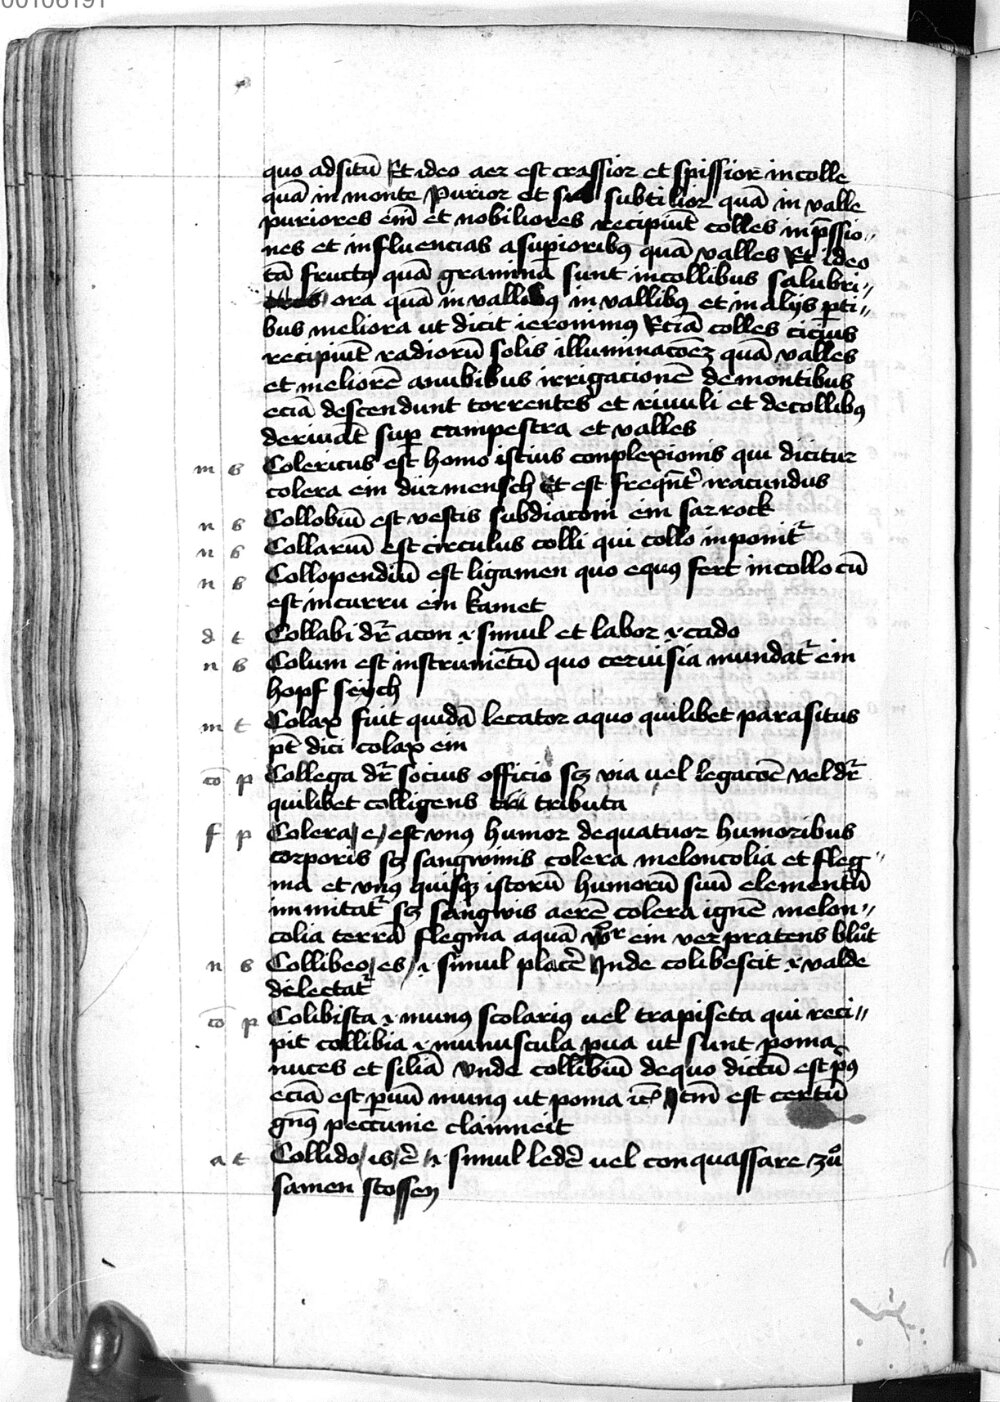 00106191
quo ad situ̅ Et ideo aer est crassior et spissior in colle
qua̅ in monte Purior et subtilior qua̅ in valle
puriores eni̅ et nobiliores recipiu̅t colles inp̅ssio〃
nes et influencias a sup̲ioribꝰ qua̅ valles Et ideo
ta̅ fructꝰ qua̅ gramina sunt in collibus salubri〃
ora qua̅ in vallibꝰ in vallibꝰ et in alijs p̲ti〃
bus meliora ut dicit ieronimꝰ Ecia̅ colles cicius
recipiu̅t radioru̅ solis illuminac̅oeʒ qua̅ valles
et meliore̅ a nubibus irrigacione̅ de montibus
ecia̅ descendunt torrentes et riuuli et de collibꝰ
deriua̅t sup̲ campestra et valles
m s Colericus est homo istius conplexionis qui dicitur
colera ein dürmensch Et est freque̅t̓ iracundus
n s Collobiu̅ est vestis subdiaconi ein sarrock
n s Collariu̅ est circulus colli qui collo inponit̓
n s Collopendiu̅ est ligamen quo equꝰ fert in collo cu̅
est in curru ein kamet
d t Collabi dr̅ a con ⁊ simul et labor ⁊ cado
n s Colum est instrume̅tu̅ quo ceruisia mundat̓ ein
hopf seych
m t Colax fuit quida̅ lecator a quo quilibet parasitus
pt̅ dici colax ein
co̅ p Collega dr̅ socius officio sꝫ via uel legac̅oe vel dr̅
quilibet colligens tributa
f p Colera / e / est vnꝰ humor de quatuor humoribus
corporis sꝫ sangwinis colera meloncolia et fleg〃
ma et vnꝰ quisqꝫ istoru̅ humoru̅ suu̅ elementu̅
immitat̓ sꝫ sangwis aere̅ colera igne̅ melon〃
colia terra̅ flegma aqua̅
n s Collibeo / es / ⁊ simul place̅ Inde colibescit ⁊ valde
delectat̓
co̅ p Colibista ⁊ munꝰ scolariꝰ uel trapiseta qui reci〃
pit collibia ⁊ munuscula p̲ua ut sunt poma
nuces et si̅lia Vnde collibiu̅ de quo dictu̅ est p̓ꝰ
ecia̅ est p̲uu̅ munꝰ ut poma It̅m est certu̅
gn̅ꝰ peccunie
a t Collido / is / e̅ ⁊ simul lede̅ uel conquassare zů
samen stossen